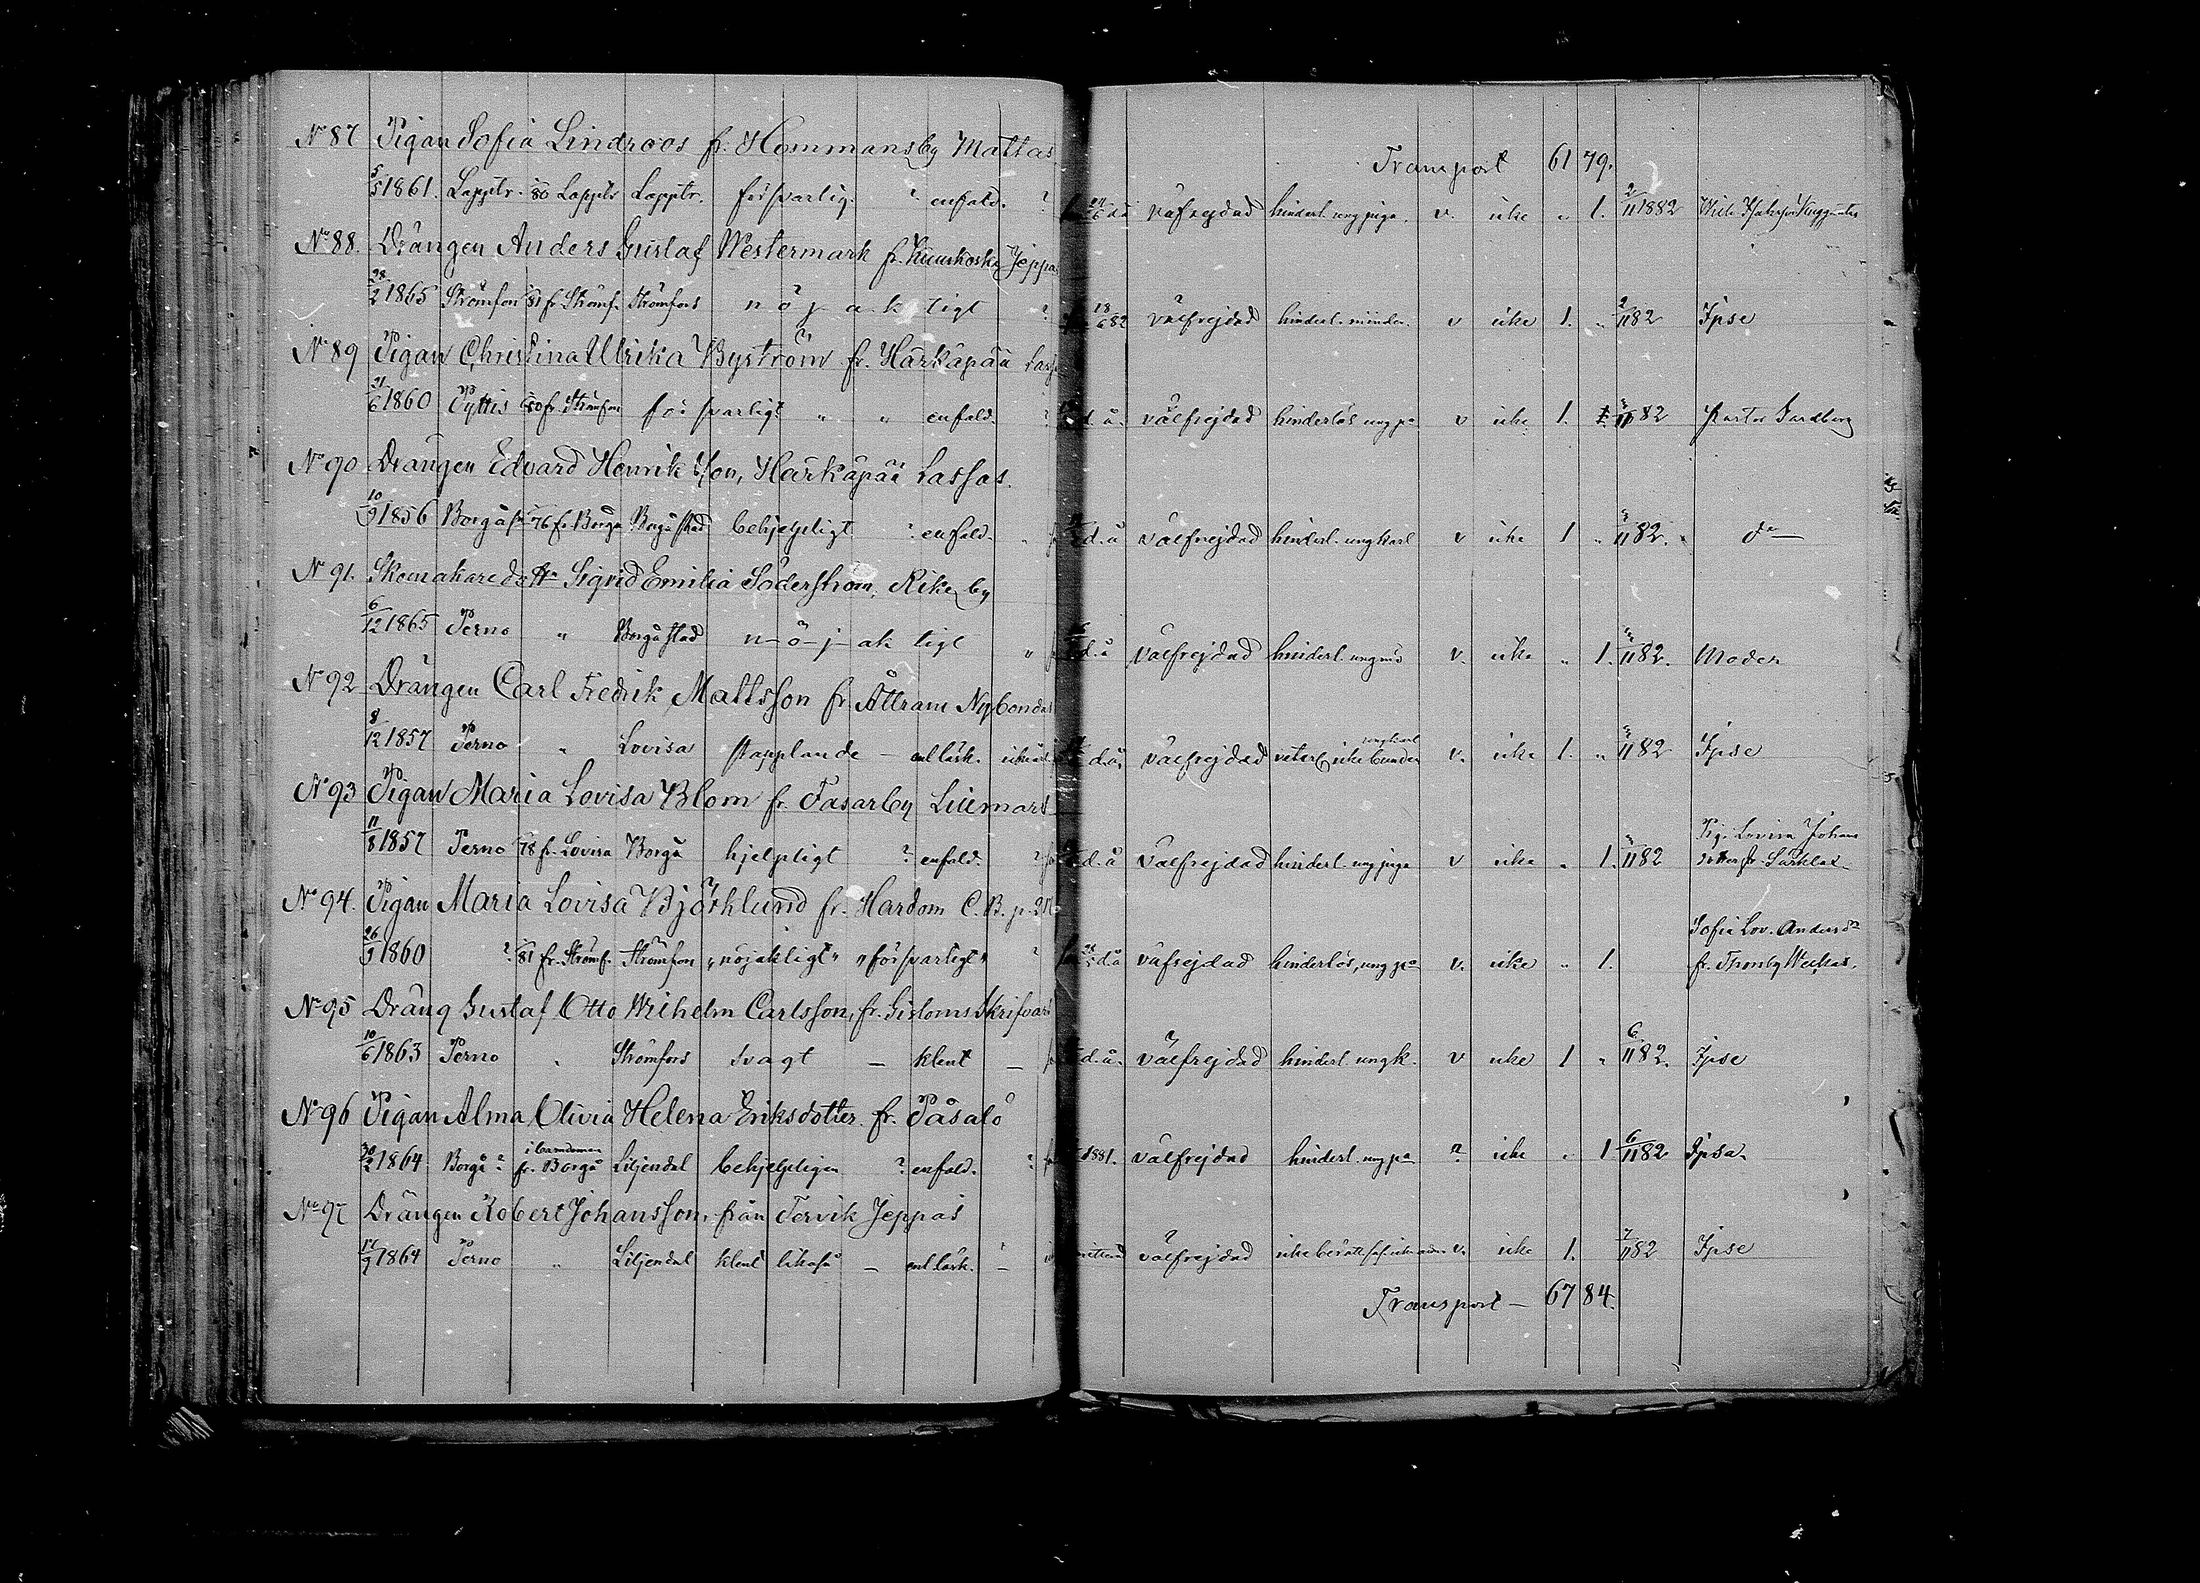 Transport 61 79.
No 87 Pigan Sofia Lindroos fr. Hommansby Mattas
5/5 1861. Lapptr. 80 Lappts Lapptr. försvarlig. ? enfald. ? d.å välfrejdad hinderl. ung piga. v. icke " 1. 2/11 1882
No 88. Drängen Anders Gustaf Westermark fr. Kuuskoski Jeppas
28/2 1865 Strömfors 81 fr. Strömf. Strömfors nöjaktigt ? 18/6 82 välfrejdad hinderl. v icke 1. " 2/11 82 Ipse
No 89 Pigan Christina Ulrika Byström fr. Härkäpää Lass
21/6 1860 Pyttis 80 fr. Strömfors försvarligt " " enfald. ? d.å. välfrejdad hinderlös ung pa v icke 1. 11 82 Pastor Sandberg
No 90 Drängen Edvard Henrikson, Härkäpää Lassas.
10/9 1856 Borgå st 76 fr. Borgå Borgå stad behjelpligt ? enfald. " d.å välfrejdad hinderl. ung karl v icke 1 " 11 82. do
No 91. Skomakaredottr Sigrid Emilia Söderström, Rikeby
6/12 1865 Perno " Borgå stad nöjaktigt " d.å välfrejdad hinderl. ung v. icke " 1. 11 82. Moder
No 92 Drängen Carl Fredrik Mattsson fr. Ättram Nybondas
8/12 1857 Perno " Lovisa stapplande — enl läsk. d.å. välfrejdad veterl icke bunden ungkarl v. icke 1. " 11 82 Ipse
No 93 Pigan Maria Lovisa Blom fr. Tasarby Liemars
11/8 1857 Perno 78 fr. Lovisa Borgå hjelpligt ? enfald. ? d.å välfrejdad hinderl. ung piga v icke " 1. 11 82 Pig. Lovisa Johans
dotter fr. Särklax
No 94. Pigan Maria Lovisa Björklund fr. Hardom C.B. p. 21
26/9 1860 ? 81 fr. Strömf. Strömfors "nöjaktigt" "försvarligt" ? d.å välfrejdad hinderlös, ung pa v. icke " 1. Sofia Lov. Andersdr
fr. Thomby Weckas.
No 95 Dräng Gustaf Otto Wilhelm Carlsson, fr. Gisloms Skrifvars
10/6 1863 Perno " Strömfors svagt — klent — d.å. välfrejdad hinderl. ung k. v icke 1 " 6/11 82. Ipse
No 96 Pigan Alma Olivia Helena Eriksdotter fr. Påsalö
1864 Borgå ? i barndomen fr. Borgå Liljendal behjelpligen ? enfald. ? 1881. välfrejdad hinderl. ung pa ? icke " 1 6/11 82 Ipsa
No 97 Drängen Robert Johansson, från Tervik Jeppas
17/9 1864 Perno " Liljendal klent likaså — enl läsk. — välfrejdad v. icke 1. 7/11 82 Ipse
Transport — 67 84.